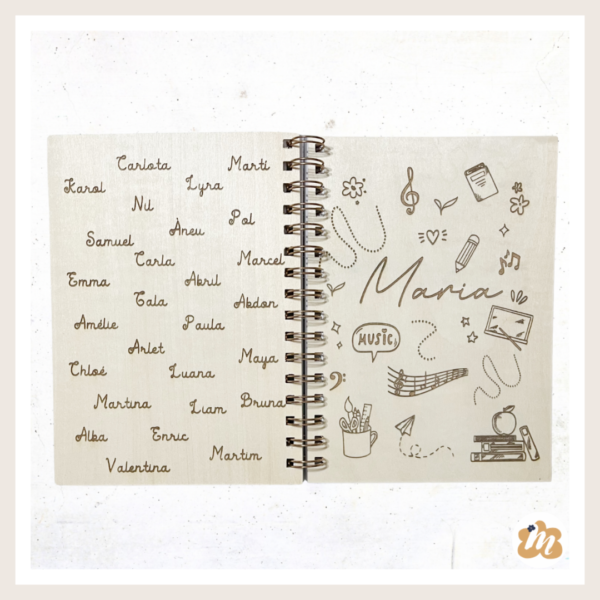 Carlota
Martí
Karol
Lyra
Nil
Pol
Àneu
Samuel
Carla
Marcel
Emma
Abril
Gala
Abdon
Amélie
Paula
Arlet
Maya
Chloé
Luana
Martina
Liam
Bruna
Alba
Enric
Martim
Valentina
Maria
MUSIC
m